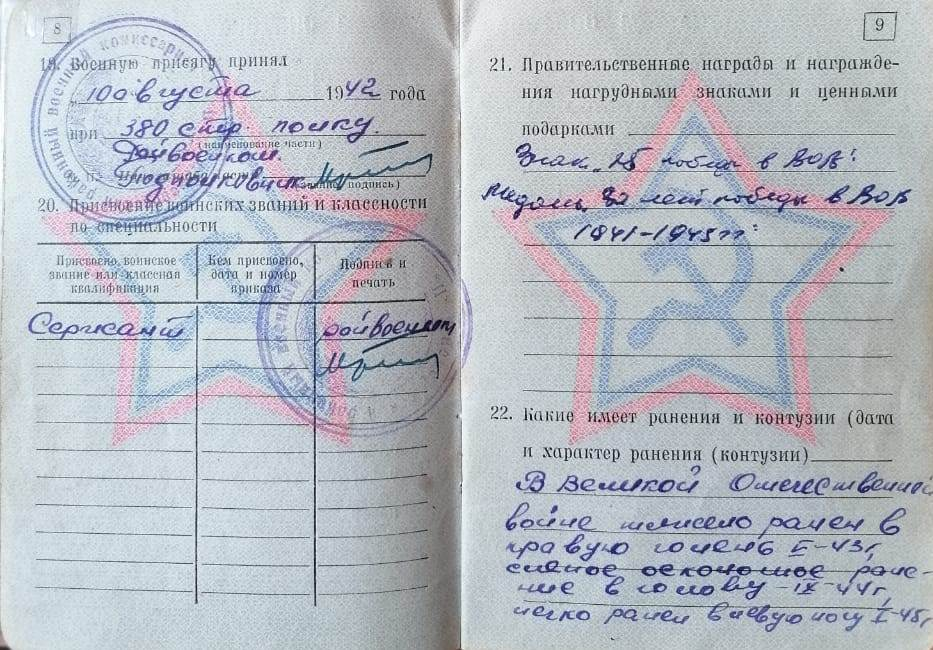 8
19. Военную присягу принял
„10 августа 1942 года
при 380 стр полку.
(наименование части)
Райвоенком.
подполковник
(звание, подпись)
20. Присвоение воинских званий и классности
по специальности
Присвоено воинское
звание или классная
квалификация
Кем присвоено,
дата и номер
приказа
Подпись и
печать
Сержант
райвоенком
9
21. Правительственные награды и награжде-
ния нагрудными знаками и ценными
подарками
Знак „25 победы в ВОВ"
Медаль „ лет победы в ВОВ
1941-1945гг"
22. Какие имеет ранения и контузии (дата
и характер ранения (контузии)
В Великой Отечественной
войне тяжело ранен в
правую голень II-43г,
слепое осколочное ране-
ние в голову -IX-44г,
легко ранен в левую ногу I-45г,